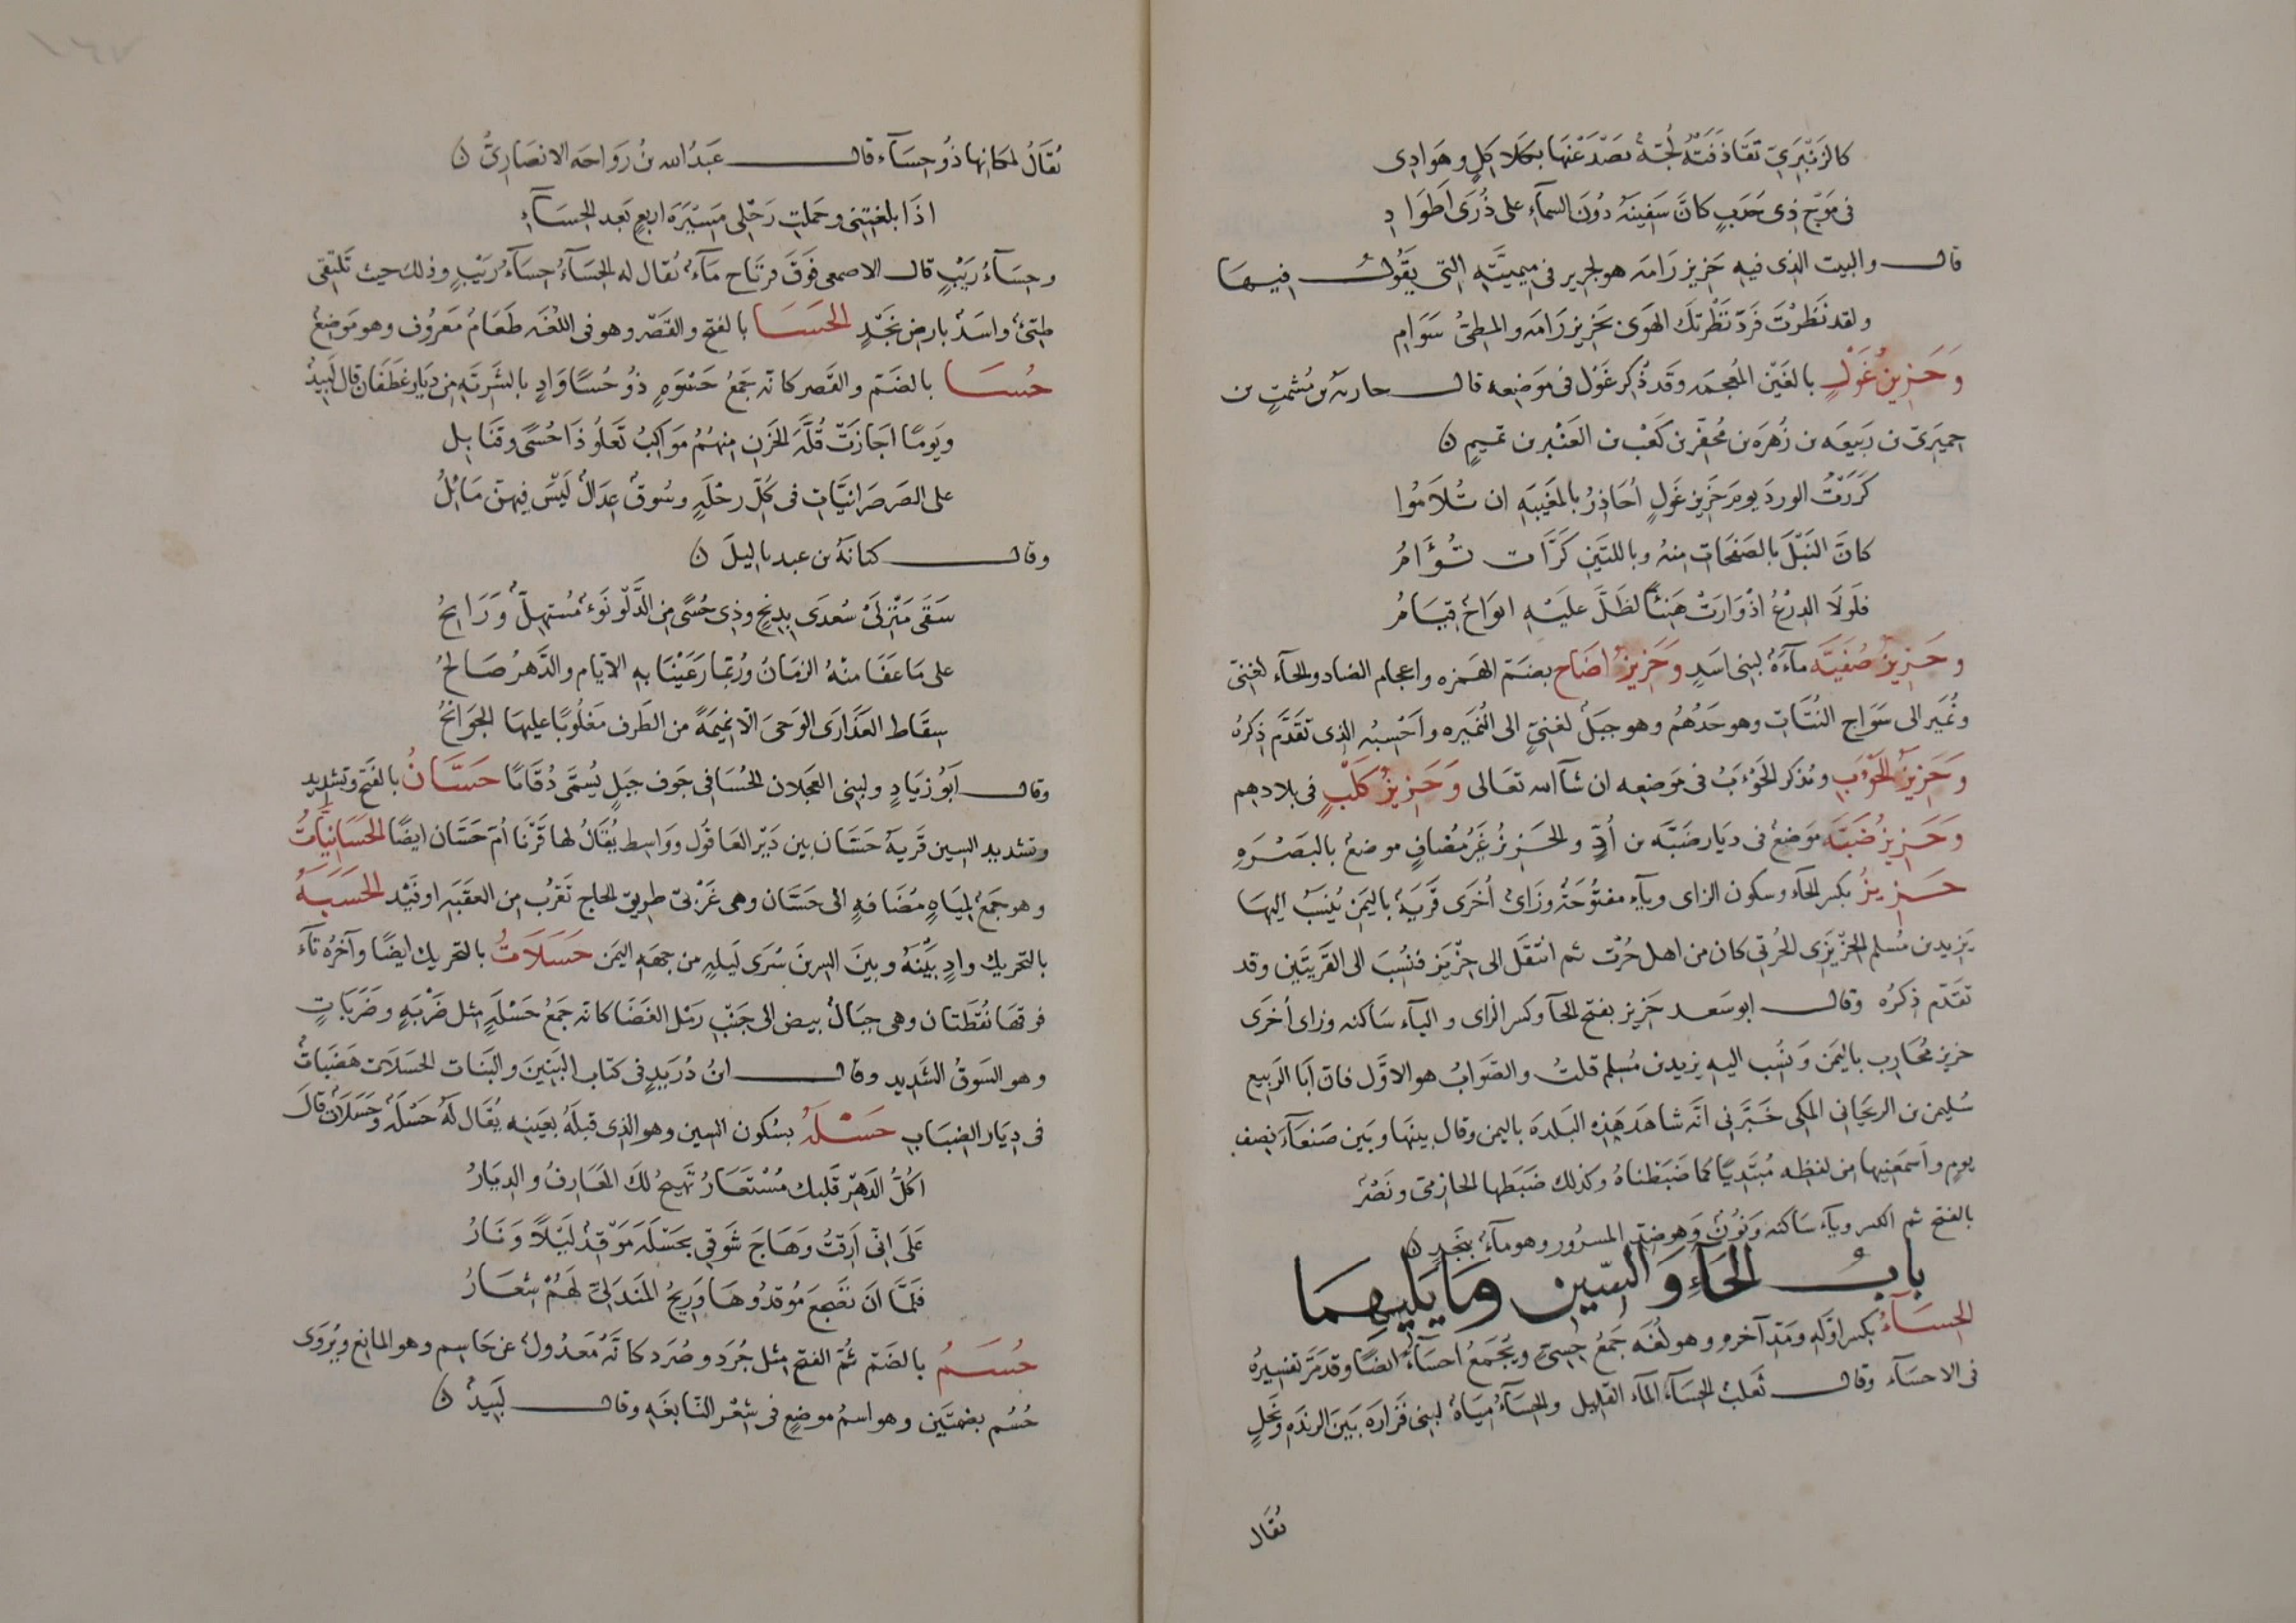 كالزَنْبَرِيّ تَقَاذَفَتْهُ لُجَّةٌ تصَدّ عَنْهَا بكَلاكِلٍ وهَوادِى
فى مَوْجٍ ذِى حَدَبٍ كانَّ سَفِينَهُ دُونَ السمآءِ على ذُرَى اَطْوَادِ
قال والبيت الذى فيهِ حَزيز رَامَه هو لجرير فى مِيميَّتِهِ التى يقُولُ فيهَا
ولقد نَظَرْتَ فَرَدّ نَظْرتكَ الهَوَى بحَزِيز رَامَه والمطىُّ سَوَامِ
وَحَزِيزُ غَوْلٍ بالغَيْن المُعجمَه وقَد ذُكِر غَوْل فى مَوضِعه قال حارثه بن مُشمتٍ بن
حِميَرِىّ بن رَبيعَه بن زُهرَه بن مُحفّر بن كَعْب بن العَنْبر بن تميمٍ ن
كَرَرْتُ الوردَ يومَ حَزِيز غَولٍ اُحَاذِرُ بالمَغيبَهِ ان تُلَامُوا
كانّ النَبْلَ بالصَفحَاتِ منهُ وباللتَينِ كَرَّات تُؤَامُ
فلَولَا الدِرْعُ اذْ وَارَتْ هَنئًا لظَلَّ علَيْهِ انوَاحٌ قِيَامُ
وحَزِيزُ صُفَيَّه مآءَةٌ لبنِى اسَدٍ وَحَزِيزُ اضَاح بضَمّ الهَمزه واعجام الضاد والحآء لغنىّ
ونُمَير الى سَوَاج النُتَآتِ وهو حَدُهُم وهو جبَلٌ لغنىٍّ الى النُمَيره واَحْسِبُه الذى تقَدَّم ذِكرُه
وَحَزِيزُ الحَوْءَب ونذكر الحَوْءَبُ فى مَوضِعِه ان شآ الله تعَالى وَحَزِيزُ كَلْبٍ فى بلادهِم
وَحَزيزُ ضَبَّهَ مَوضِعٌ فى ديَار ضَبَّه بن اُدٍّ والحَزيزُ غَيرُ مُضَافٍ موضعٌ بالبَصْرَهِ
حِزِيزُ بكسر الحآء وسكون الزاى ويآءٍ مفتُوحَةٌ وزَاىٌ اُخرَى قَريَةٌ باليَمَن يُنسَبُ اليهَا
يَزيد بن مُسلم الحِزْيَزِى الحُرتى كان من اهل حُرْت ثم انتَقَل الى حِزْيَز فنُسِبَ الى القَريتَين وقد
تقَدّم ذِكرُه وقال ابو سَعد حَزيز بفتح الحآ وكسر الزاى واليآء سَاكنه وزاى اُخرَى
حزيز مُحَارب باليمَن وَينُسب اليهِ يزيد بن مُسلم قلتُ والصَوَابُ هو الاوَّل فان اَبَا الرَبيع
سُليمن بن الريحَانى المكى خَبَّرَنى انَّه شاهَدَ هَذِه البَلدَه باليمن وقال بينهَا وبَين صَنعآءَ نِصف
يومٍ واَسمَعَنِيها مِن لفظِه مُبتدِيًا كما ضبَطناهُ وكذلك ضبَطها الحازمىّ ونَصْرٌ
بالفتح ثم الكسر ويآءٌ ساكنه وَنُونٌ وَهو ضِدّ المسرُور وهو مآءٌ بنَجْدٍ ن
بابُ الحآءِ وَالسّين ومَا يَليهِمَا
الحِسَآءُ بكسر اوّله ومَدّ آخره وهو لُغَه جَمعُ حِسِىٍّ ويُجمَعُ احسآءٌ ايضًا وقد مَرَّ تفسيرُه
فى الاحسَآء وقال ثَعلب الحِسَآء المآء القليل والحِسَآءُ مِيَاهٌ لبنِى فَزارَه بَينَ الرَبذَه ونَخْلٍ
يُقَال
يُقَالُ لمكانِها ذُو حِسَآء قال عَبدُ الله بنُ رَوَاحَه الانصَارِىُّ ن
اذَا بلغتِنِى وحَملتِ رَحْلى مَسِيْرَةَ اربعٍ بَعد الحِسَآءِ
وحِسَآءُ رَيْبٍ قال الاصمعى فَوقَ فرتَاح مَآءٌ يُقال له الحِسَآءُ حِسَآءُ رَيْبٍ وذلك حيث تَلتقى
طيّئٌ واسَدٌ بارضِ نَجْدٍ الحَسَا بالفتح والقَصْر وهو فى اللُغَه طَعَامٌ مَعرُوف وهو مَوضِعٌ
حُسَا بالضَم والقَصر كانّه جَمعُ حَسْوَهٍ ذُو حُسًا وَادٍ بالشَرَبّه مِن ديَار غَطَفَان قال لَبيدٌ
ويَومًا اجَازَتْ قُلَّةَ الحَزنِ مِنهُمُ مَوَاكِبُ تَعلُو ذَا حُسًى وقَنَابِل
على الصَرصَرَانيَّاتِ فى كُلّ رحْلَهٍ وسُوقٌ عِدَالٌ لَيْسَ فيهنّ مَائلُ
وقال كنَانَهُ بن عبد ياليلَ ن
سَقَى مَنْزِلَىْ سُعدَى بدمْخٍ وذِى حُسًى مِن الدَّلْو نَوْءٌ مُستهِلٌّ وَرَائحُ
على مَا عَفَا منْهُ الزمَانُ ورُبّمَا رَعَيْنَا بهِ الايّام والدَّهرُ صَالحُ
سِقَاط العَذَارَى الوَحىَ الّا نِميمَةً من الطَرف مَغلُوبًا عليهَا الجوَانحُ
وقال اَبُو زيَادٍ ولبنى العَجلان الحُسَا فى جَوف جَبَلٍ يُسَمَّى دُقَامًا حَسَّانُ بالفَتح وتشديد
وتشديد السين قَريةُ حَسَّان بين دَيْر العَاقُول ووَاسِط يُقَالُ لها قَرْنَا اُمّ حَسَّان ايضًا الحَسَانيَّاتُ
وهو جَمعٌ لمِيَاهٍ مضَافهٍ الى حَسَّان وهى غَرْبىّ طريق الحاج تَقرُب مِن العقَبَه او فَيْد الحَسَبَهُ
بالتحريك وادٍ بَيْنَهُ وبينَ السرينَ سُرَى لَيلَهٍ من جهَه اليمَن حَسَلَاتُ بالتحريك ايضًا وآخرُه تآء
فوقهَا نُقطَتان وهى جبَالٌ بيض الى جَنْبِ رَمْل الغَضَا كانّه جَمعُ حَسْلَهٍ مثل ضَرْبَهٍ وضَرَبَاتٍ
وهو السَوقُ الشَديد وقال ابنُ دُرَيدٍ فى كتاب البَنِينَ والبَنات الحَسَلَات هَضَبَاتٌ
فى دِيَار الضِبَابِ حَسْلَهُ بسُكون السين وهو الذى قبلَهُ بعَينِه يُقَال لَهُ حَسْلَهُ وحَسَلَات قالَ
اكُلَّ الدَهْر قَلبك مُسْتَعَارُ تَهيجُ لكَ المعَارِفُ والدِيَارُ
عَلَى انّى اَرِقتُ وَهَاجَ شَوقى بحَسْلَه مَوْقِدٌ لَيْلًا وَنَارُ
فلمَّا اَن تضَجعَ مُوقدُوهَا وَرِيحُ المَندَلىّ لَهُمْ شِعَارُ
حُسَمُ بالضَم ثُمّ الفتح مثل جُرَد وصُرَد كانّهُ مَعدُولٌ عَن حَاسِم وهو المانع ويُروَى
حُسُم بضمتَين وهو اسمُ موضعٍ فى شعْر النَابغَهِ وقال لَبيدٌ ن